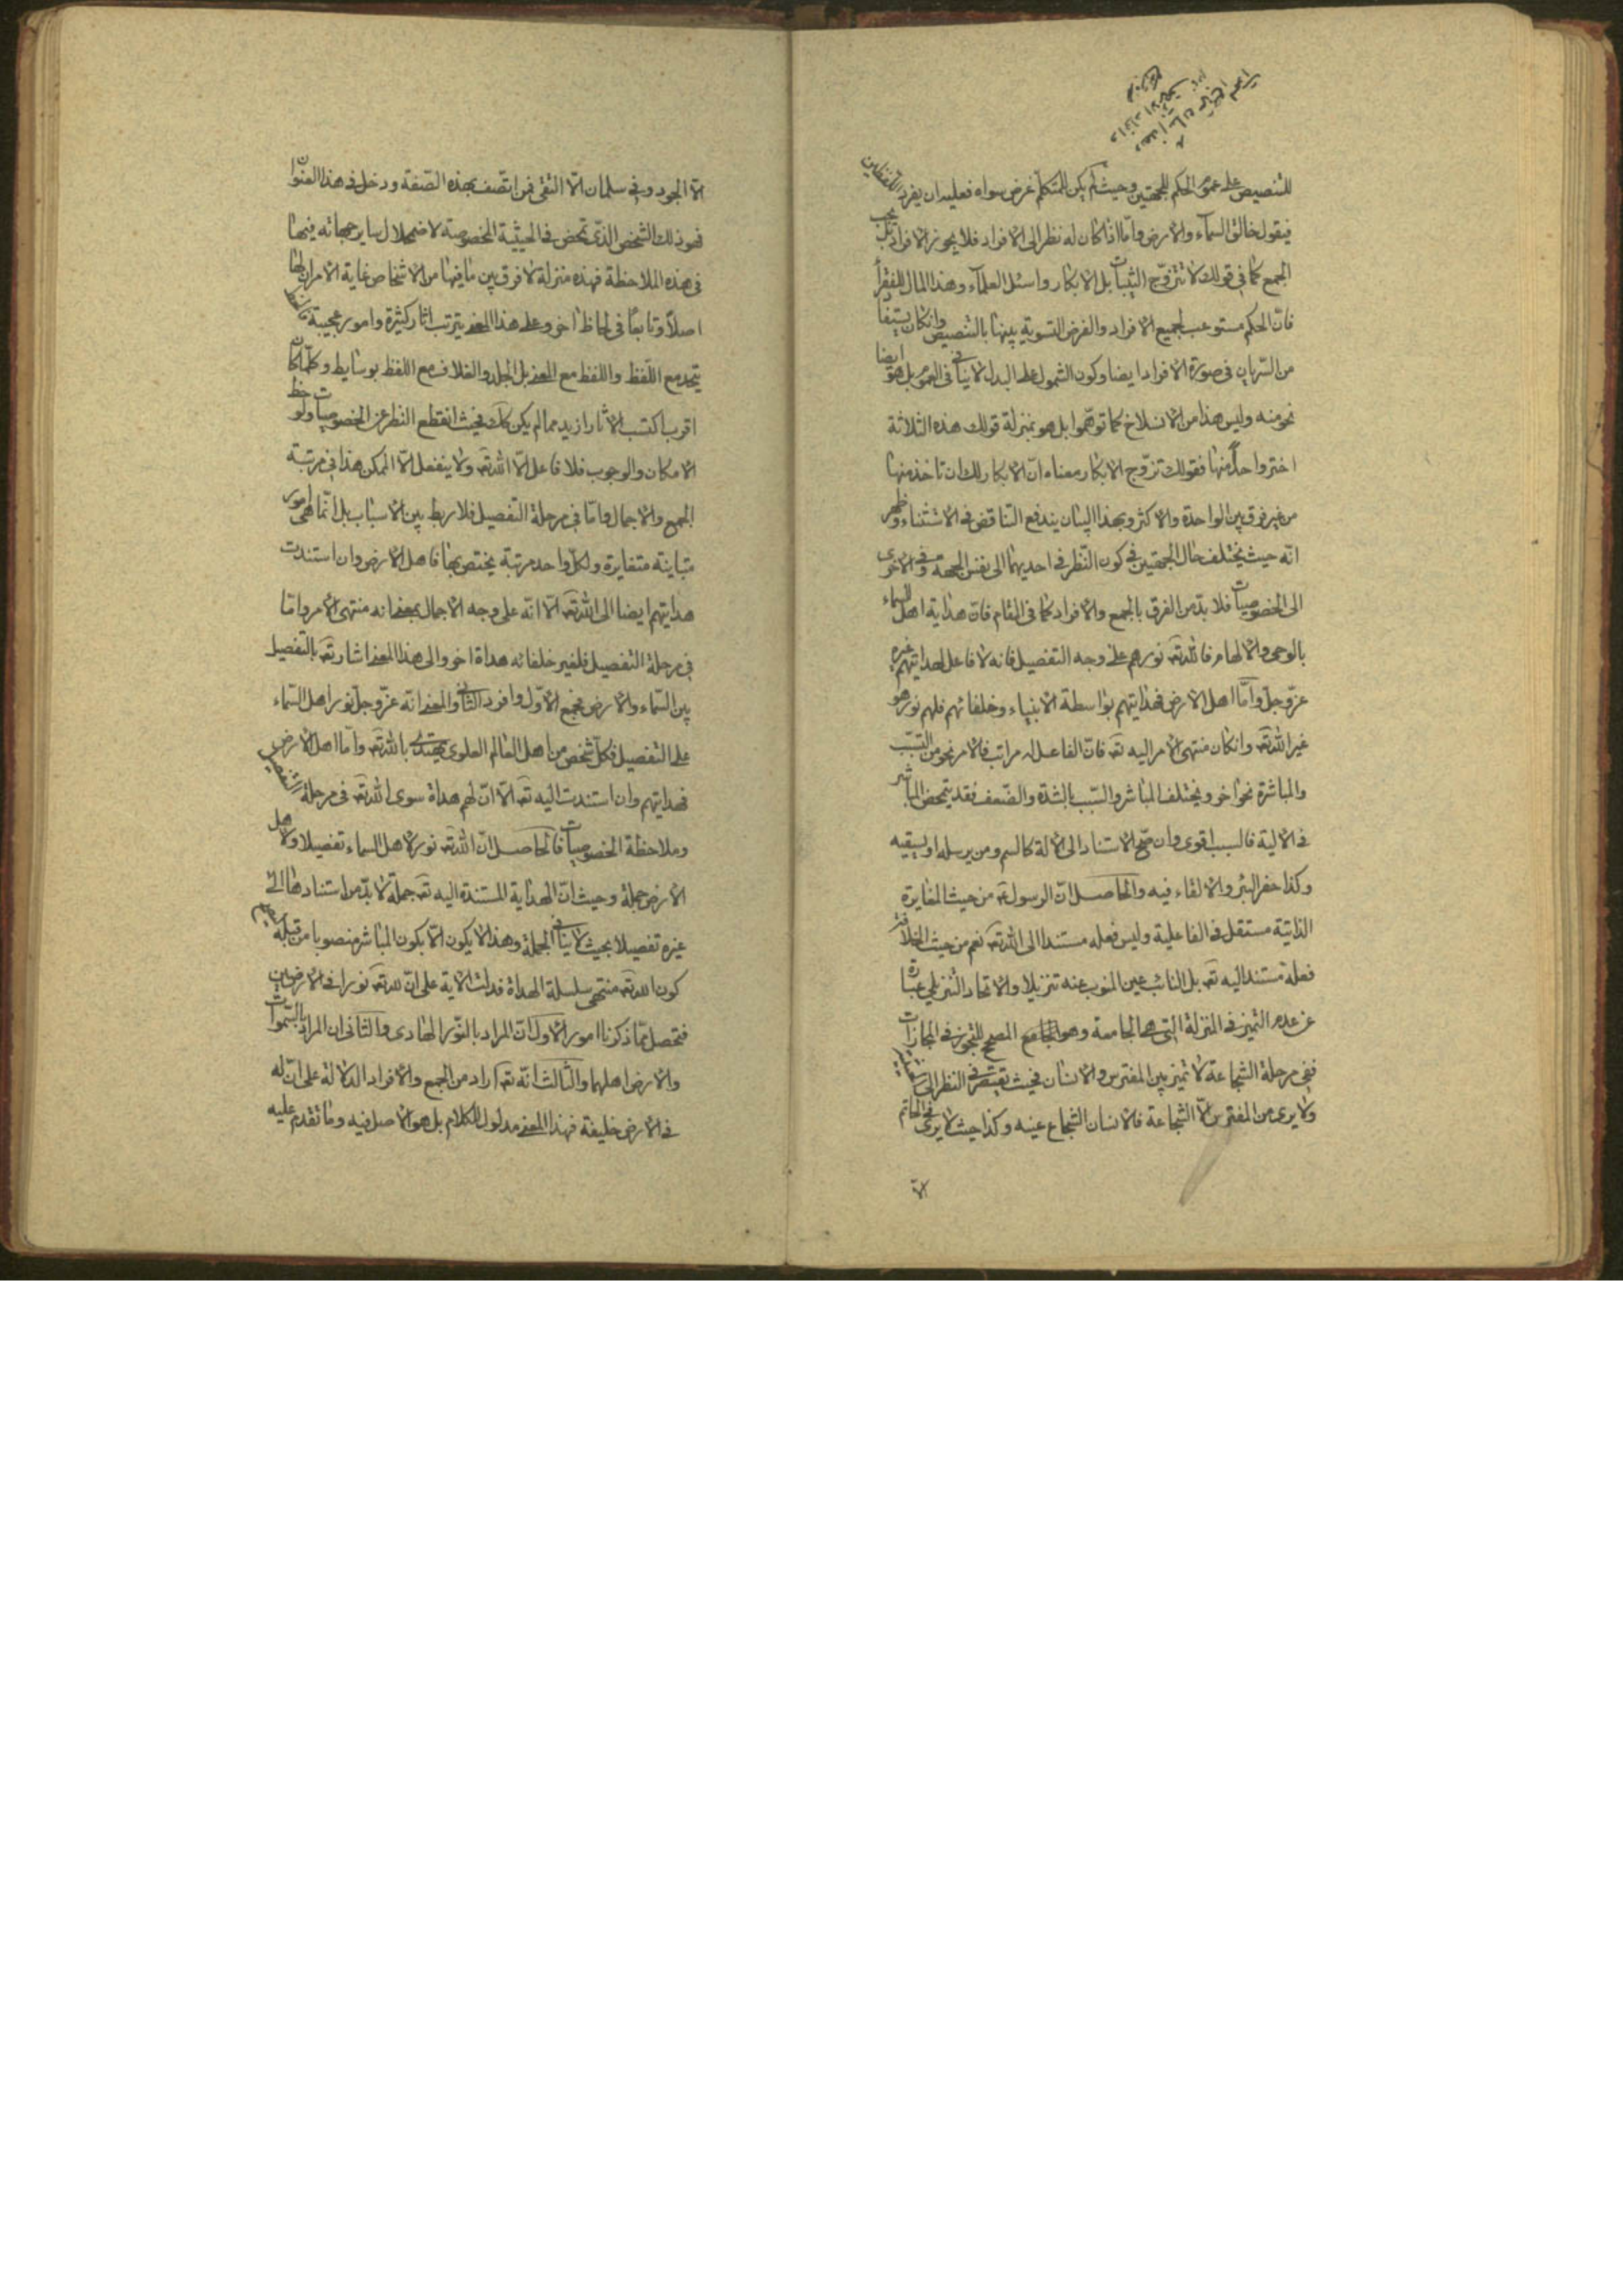 للتنصيص على عموم الحكم للجهتين وحيث لم يكن للمتكلم غرض سواه فعليه ان يفرد اللفظين
فيقول خالق السمآء والارض وامّا اذا كان له نظر الى الافراد فلا يجوز الافراد بل يجب
الجمع كما في قولك لا تتزوّج الثيّبات بل الابكار واسئل العلمآء وهذا المال للفقرآء
فانّ الحكم مستوعب لجميع الافراد والغرض التسوية بينها بالتنصيص وان كان يستفا
من السّريان في صورة الافراد ايضا وكون الشمول على البدل لا ينافي العموم بل هو ايضا
نحو منه وليس هذا من الانسلاخ كما توهّموا بل هو بمنزلة قولك هذه الثلاثة
اختر واحداً منها فقولك تزوّج الابكار معناه انّ الابكار لك ان تاخذ منها
من غير فرق بين الواحدة والاكثر وبهذا البيان يندفع التناقض في الاستثناء وظهر
انّه حيث يختلف حال الجهتين في كون النّظر في احديهما الى نفس الجهة وفي الاخرى
الى الخصوصيات فلا بدّ من الفرق بالجمع والافراد كما في المقام فانّ هداية اهل السماء
بالوحى والالهام فالله تعـ نورهم على وجه التفصيل فانه لا فاعل لهدايتهم غيره
عزّ وجلّ وامّا اهل الارض فهدايتهم بواسطة الانبياء وخلفائهم فلهم نور هو
غير الله تعـ وان كان منتهى الامر اليه تعـ فانّ الفاعل له مراتب فالامر نحو من التسبّب
والمباشرة نحو اخر ويختلف المباشر والسّبب بالشدّة والضّعف فقد يتمحض المباشر
في الالية فالسبب اقوى وان صحّ الاستناد الى الالة كالسم ومن يرسله او يسقيه
وكذا حفر البئر والالقاء فيه والحاصل انّ الرسول من حيث المغايرة
الذاتية مستقل في الفاعلية وليس فعله مستندا الى الله تعـ نعم من حيث الخلافة
فعله مستند اليه تعـ بل النائب عين المنوب عنه تنزيلا والاتحاد التنزيلي عبارة
عن عدم التميز في المنزلة التي هي الجامعة وهو الجامع المصحح للتجوز في المجازات
ففي مرحلة الشجاعة لا تميز بين المفترس والانسان فحيث يقتصر في النظر الى
ولا يرى من المفترس الّا الشجاعة فالانسان الشجاع عينه وكذا حيث لا يرى في الحاتم
الّا
الّا الجود وفي سلمان الّا التقى فمن اتّصف بهذه الصّفة ودخل في هذا العنوان
فهو ذلك الشخص الذي تمحض في الحيثية المخصوصة لاضمحلال ساير جهاته فيها
في هذه الملاحظة فهذه منزلة لا فرق بين ما فيها من الاشخاص غاية الامر ان لها
اصلاً وتابعًا في لحاظ اخر وعلى هذا المعنى يترتب اثار كثيرة وامور عجيبة
يتحد مع اللّفظ واللفظ مع المعنى بل الجلد والغلاف مع اللفظ بوسايط وكلّما كان
اقرب اكتسب الاثار ازيد مما لم يكن كك فحيث انقطع النظر عن الخصوصيات ولوحظ
الامكان والوجوب فلا فاعل الّا الله تعـ ولا ينفعل الّا الممكن هذا في مرتبة
الجمع والاجمال وامّا في مرحلة التّفصيل فلا ربط بين الاسباب بل انّما هى امور
متباينة متغايرة ولكلّ واحد مرتبة يختص بها فاهل الارض وان استندت
هدايتهم ايضا الى الله تعـ الّا انّه على وجه الاجمال بمعنى انه منتهى الامر وامّا
في مرحلة التفصيل فلغير خلفائه هداة اخر والى هذا المعنى اشار تعـ بالتّفصيل
بين السّماء والارض فجمع الاوّل وافرد الثاني والمعنى انّه عزّ وجلّ نور اهل السّماء
على التفصيل فكلّ شخص من اهل العالم العلوى يهتدى بالله تعـ وامّا اهل الارض
فهدايتهم وان استندت اليه تعـ الّا انّ لهم هداة سوى الله تعـ في مرحلة التفصيل
وملاحظة الخصوصيات فالحاصل انّ الله تعـ نور لاهل السماء تفصيلا ولاهل
الارض جملة وحيث انّ الهداية المستندة اليه تعـ جملة لا بدّ من استنادها الى
غيره تفصيلا بحيث لا ينافي الجملة وهذا لا يكون الّا بكون المباشر منصوبا من قبله
كون الله تعـ منتهى سلسلة الهداة فدلت الاية على انّ لله تعـ نورا في الارضين
فتحصل ممّا ذكرنا امور الاول انّ المراد بالنّور الهادى والثانى ان المراد بالسّموات
والارض اهلهما والثالث انّه تعـ اراد من الجمع والافراد الدلالة على انّ له
في الارض خليفة فهذا المعنى مدلول للكلام بل هو الاصل فيه وما تقدم عليه